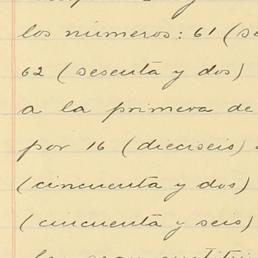 los números: 61 (se
62 (sesenta y dos)
a la primera de
por 16 (dieciseis)
(cincuenta y dos)
(cincuenta y seis)